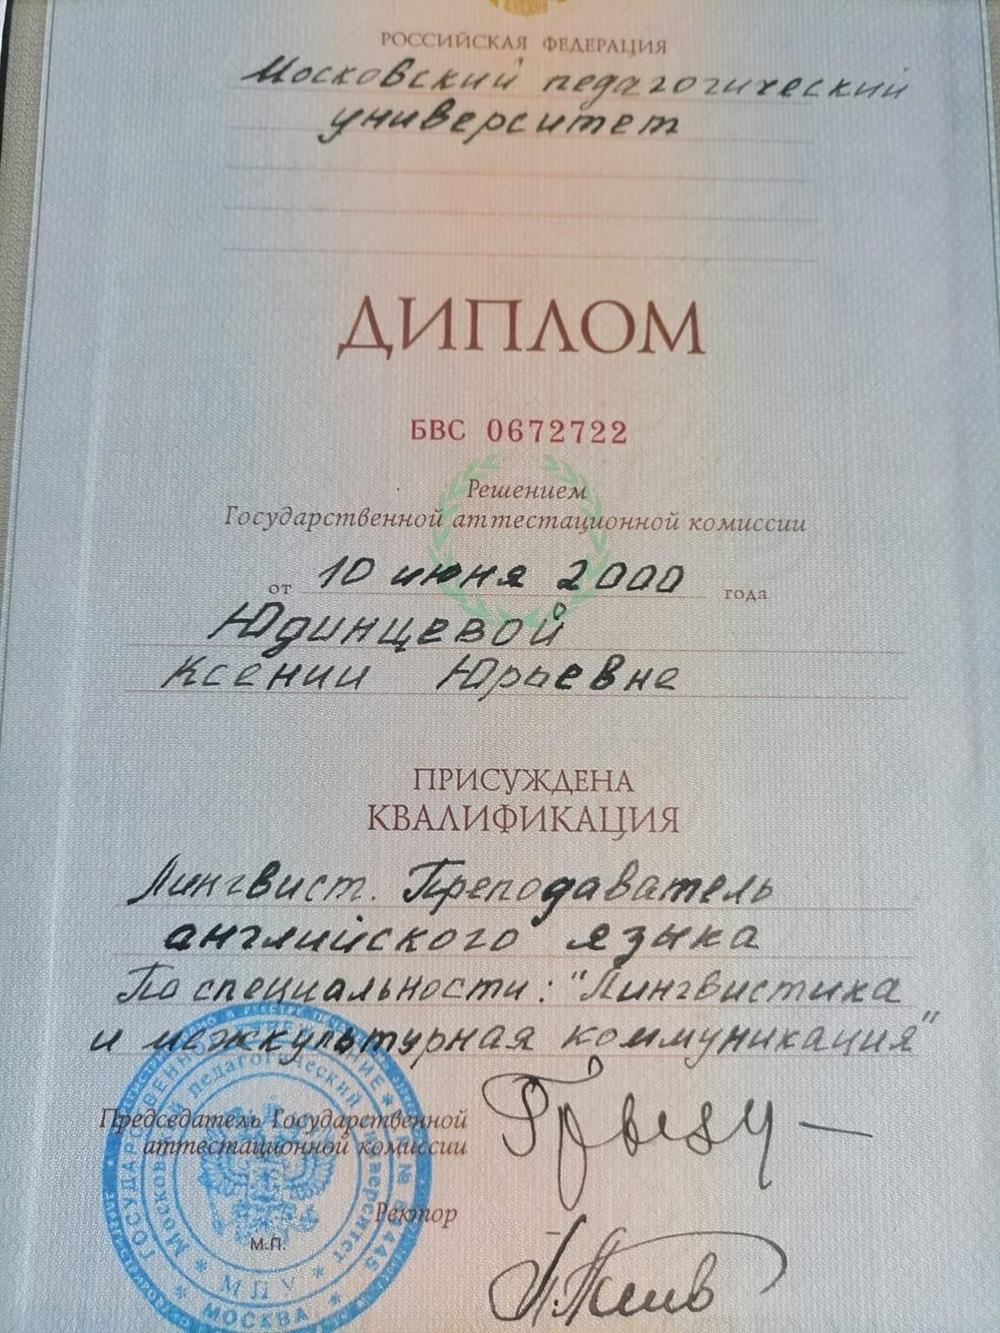 РОССИЙСКАЯ ФЕДЕРАЦИЯ
Московский педагогический
университет
ДИПЛОМ
БВС 0672722
Решением
Государственной аттестационной комиссии
от 10 июня 2000 года
Юдинцевой
Ксении Юрьевне
ПРИСУЖДЕНА
КВАЛИФИКАЦИЯ
Лингвист. Преподаватель
английского языка
По специальности: "Лингвистика
и межкультурная коммуникация"
Председатель Государственной
аттестационной комиссии
Ректор
М.П.
Московский педагогический университет
* МПУ *
* МОСКВА *